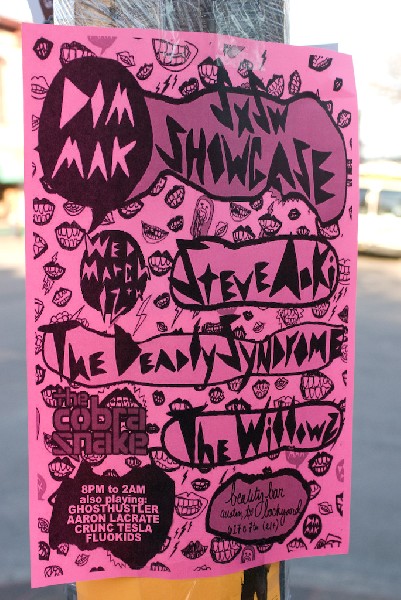 DIM
MAK
SXSW
SHOWCASE
WED
MARCH
Steve Aoki
The Deadly Syndrome
the
cobra
snake
The Willowz
8PM to 2AM
also playing:
GHOSTHUSTLER
AARON LACRATE
CRUNC TESLA
FLUOKIDS
beauty bar
backyard